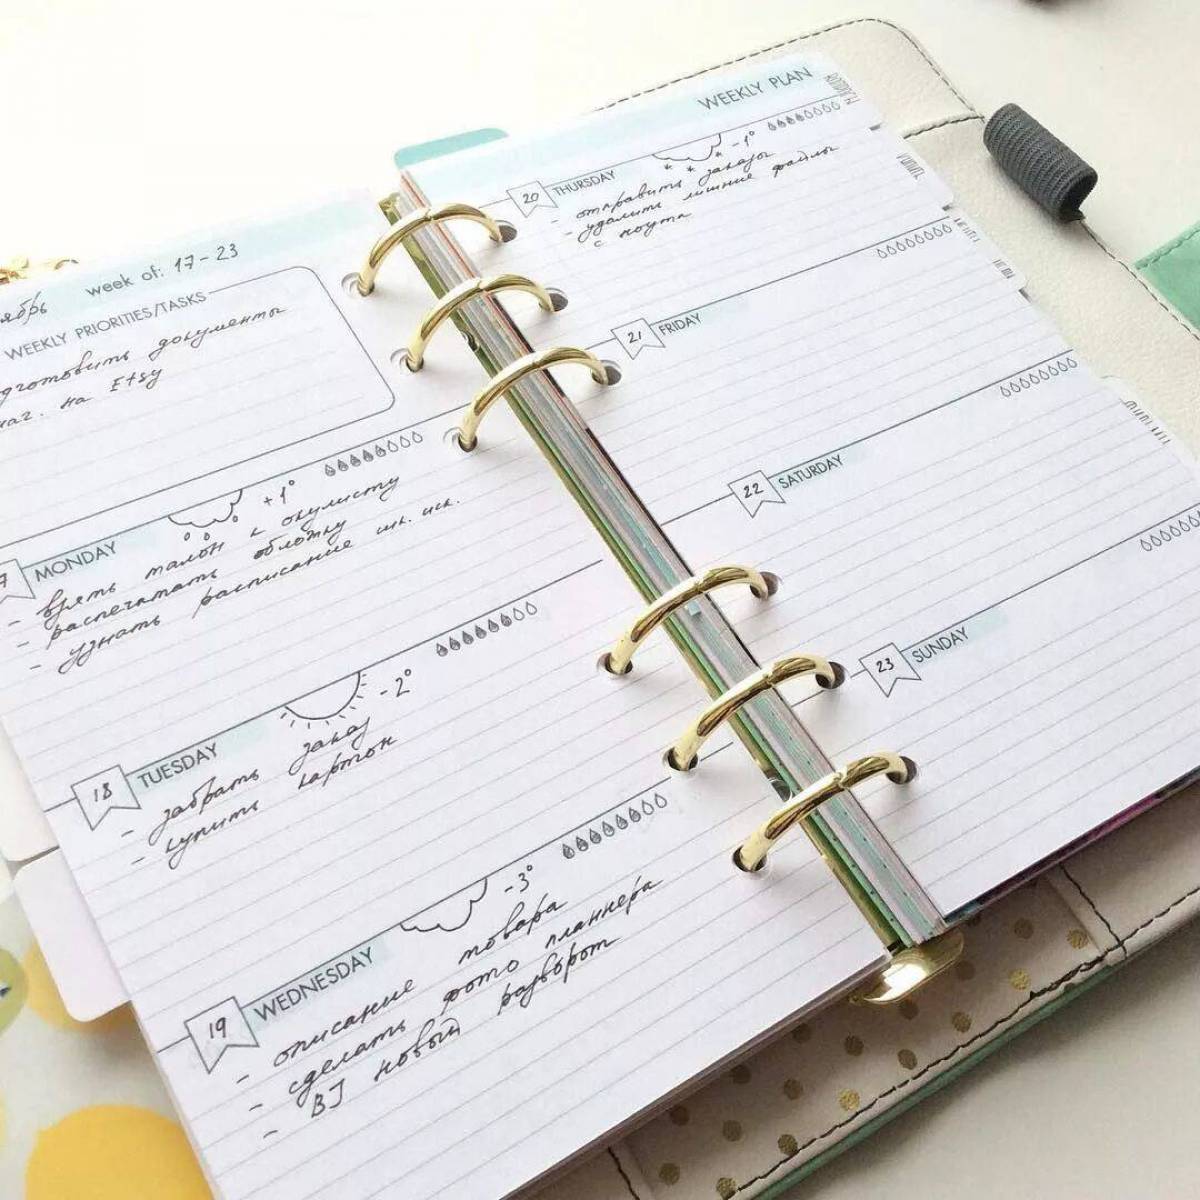 ябрь
week of: 17-23
WEEKLY PRIORITIES/TASKS
дготовить документы
маг. на Etsy
7 MONDAY
+1°
- взять талон к окулисту
- распечатать обложку
- узнать расписание шк. иск.
18 TUESDAY
-2°
- забрать заказ
- купить картон
19 WEDNESDAY
-3°
- описание товара
- сделать фото планнера
- BJ новый разворот
WEEKLY PLAN
20 THURSDAY
-1°
- отправить заказы
- удалить лишние файлы
с ноута
21 FRIDAY
22 SATURDAY
23 SUNDAY